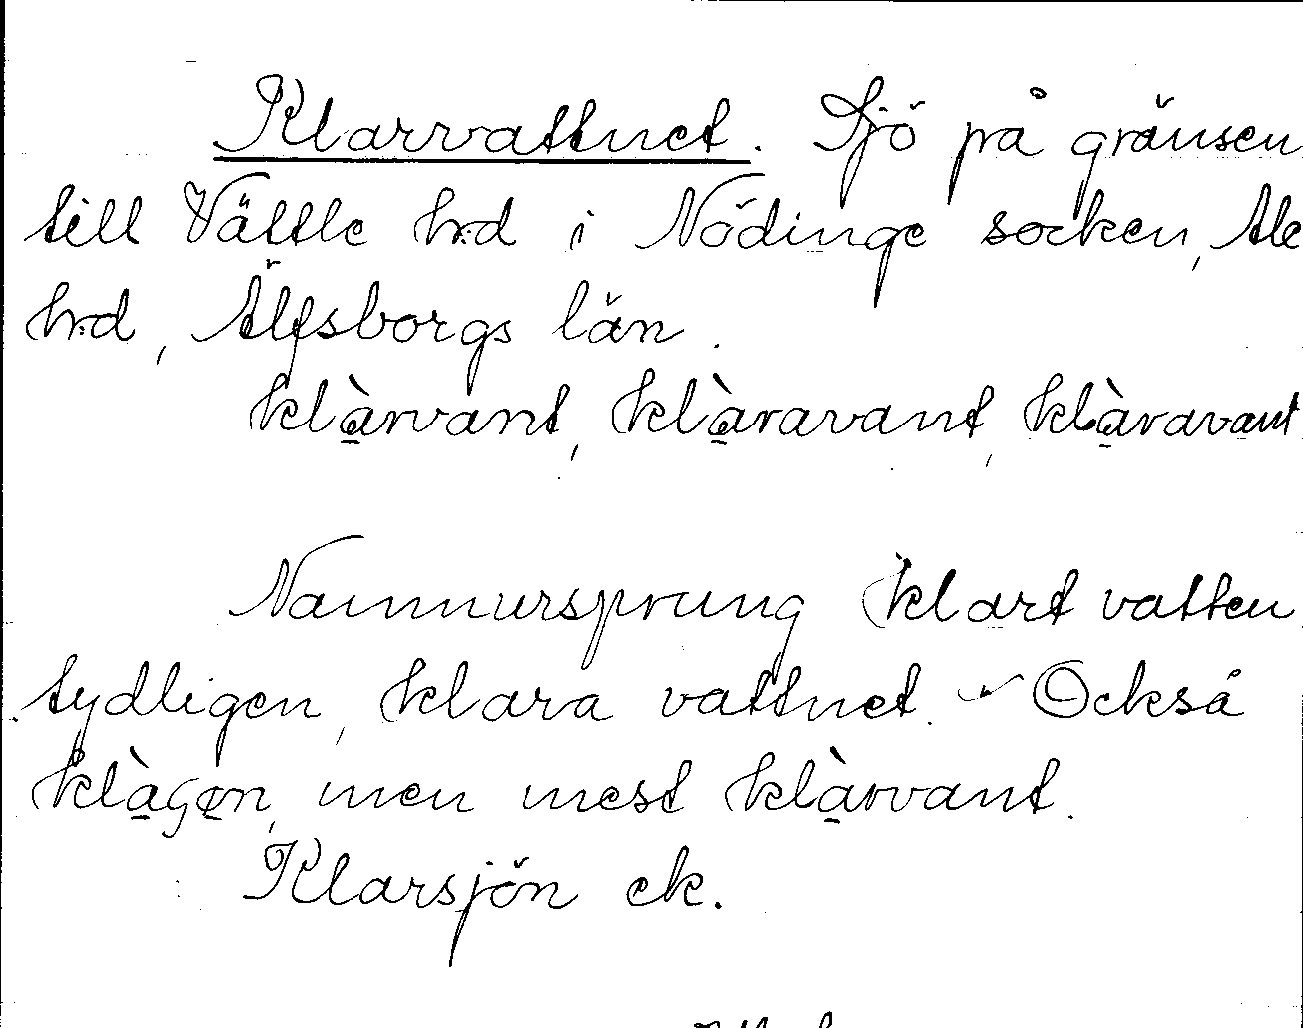 Klarvattnet. Sjö på gränsen
till Vättle hrd i Nödinge socken, Ale
hrd, Älfsborgs län.
klàrvant, klàravant, klàravant
Namnursprung klart vatten
tydligen, klara vattnet. Också
klàgøn, men mest klàrvant.
Klarsjön ek.